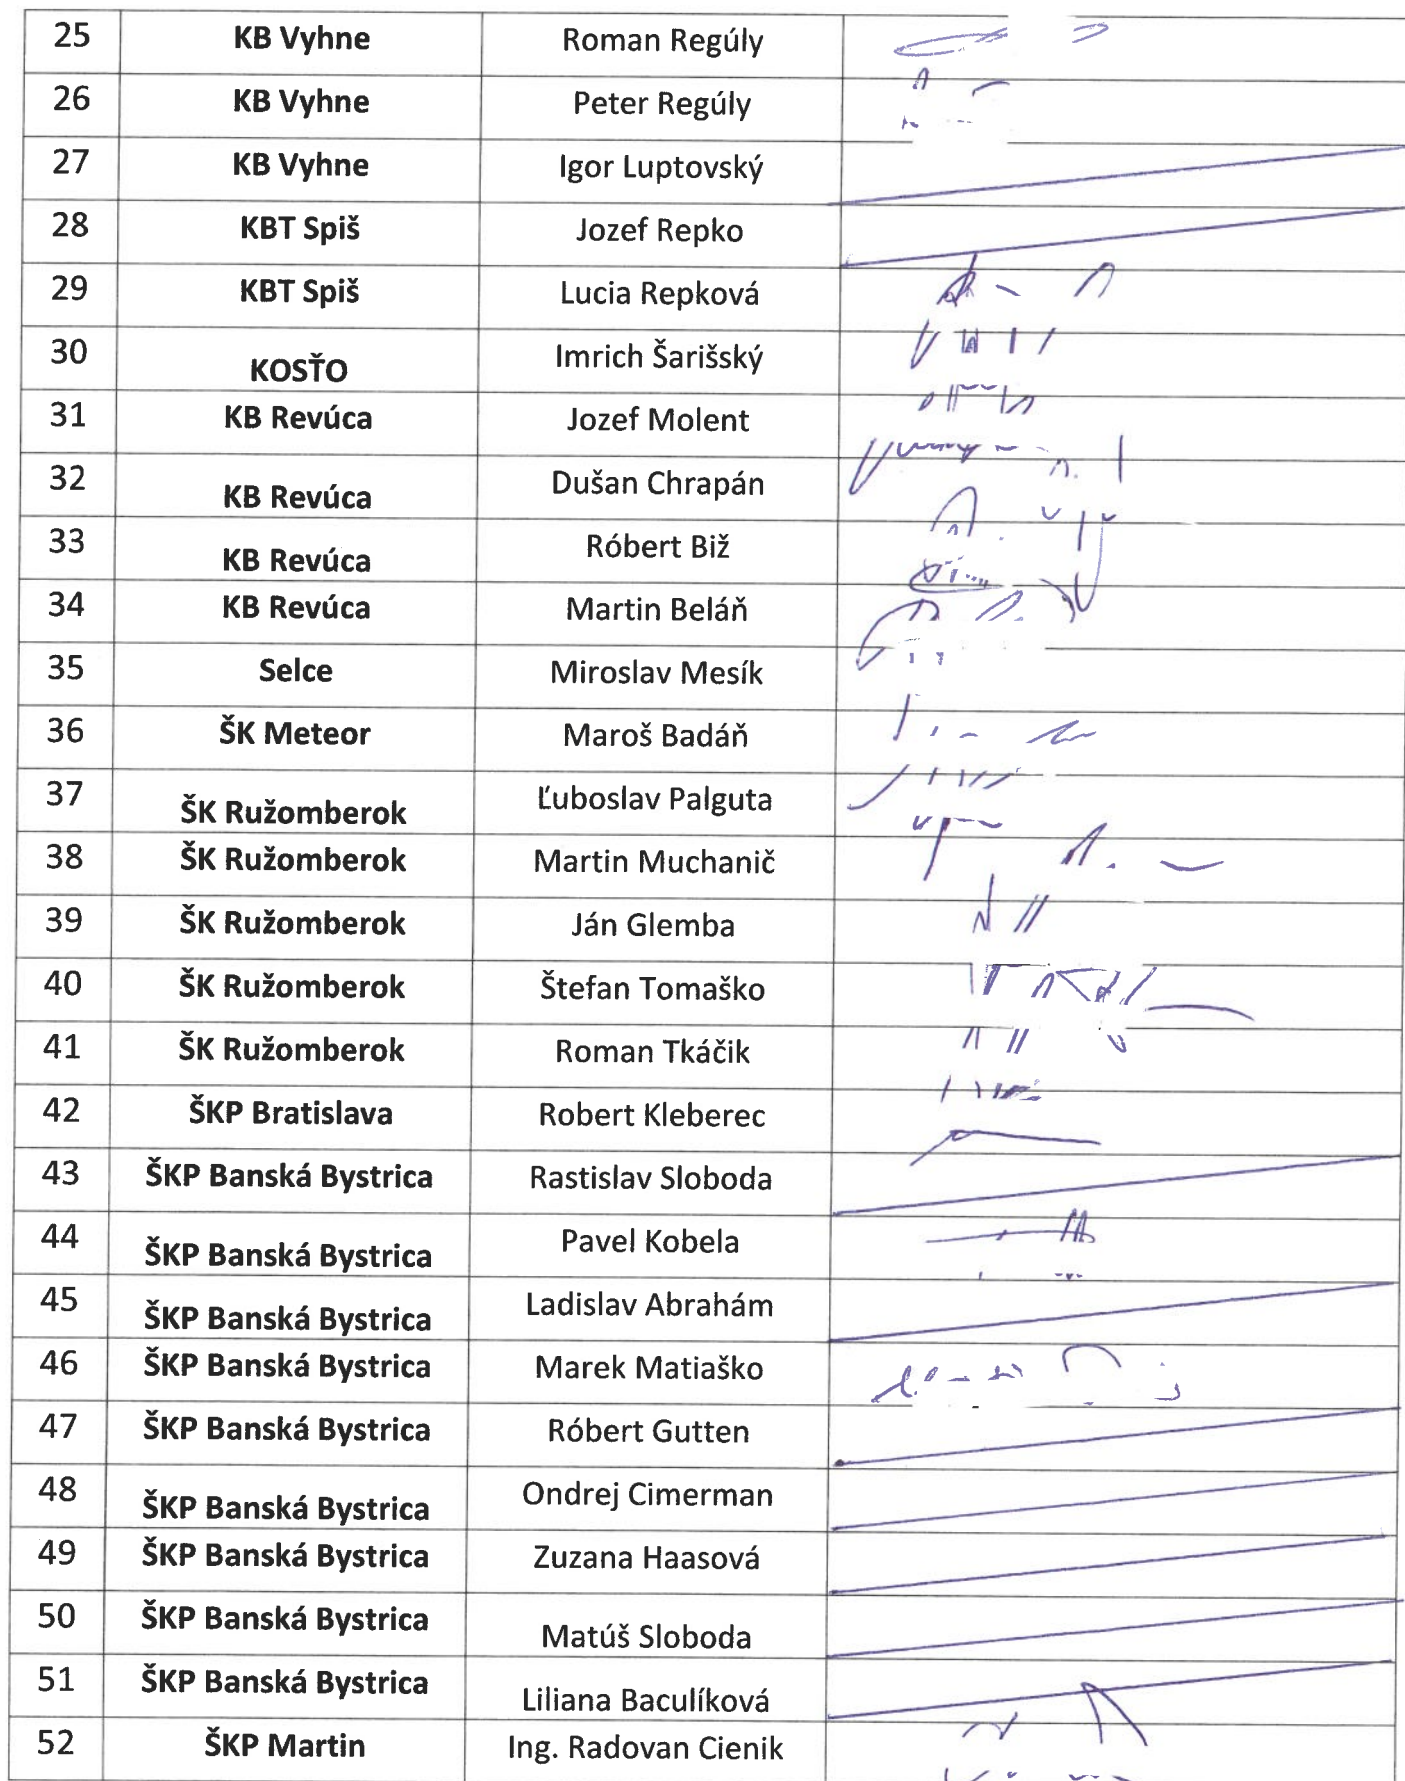 25 KB Vyhne Roman Regúly
26 KB Vyhne Peter Regúly
27 KB Vyhne Igor Luptovský
28 KBT Spiš Jozef Repko
29 KBT Spiš Lucia Repková
30 KOSŤO Imrich Šarišský
31 KB Revúca Jozef Molent
32 KB Revúca Dušan Chrapán
33 KB Revúca Róbert Biž
34 KB Revúca Martin Beláň
35 Selce Miroslav Mesík
36 ŠK Meteor Maroš Badáň
37 ŠK Ružomberok Ľuboslav Palguta
38 ŠK Ružomberok Martin Muchanič
39 ŠK Ružomberok Ján Glemba
40 ŠK Ružomberok Štefan Tomaško
41 ŠK Ružomberok Roman Tkáčik
42 ŠKP Bratislava Robert Kleberec
43 ŠKP Banská Bystrica Rastislav Sloboda
44 ŠKP Banská Bystrica Pavel Kobela
45 ŠKP Banská Bystrica Ladislav Abrahám
46 ŠKP Banská Bystrica Marek Matiaško
47 ŠKP Banská Bystrica Róbert Gutten
48 ŠKP Banská Bystrica Ondrej Cimerman
49 ŠKP Banská Bystrica Zuzana Haasová
50 ŠKP Banská Bystrica Matúš Sloboda
51 ŠKP Banská Bystrica Liliana Baculíková
52 ŠKP Martin Ing. Radovan Cienik